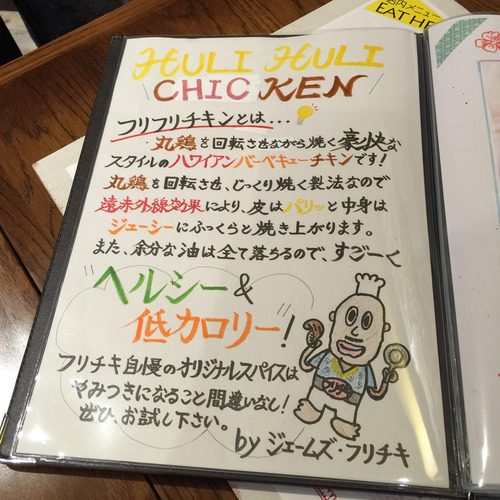 店内メニュー
EAT HE
HULI HULI
CHICKEN
フリフリチキンとは...
丸鶏を回転させながら焼く豪快な
スタイルのハワイアンバーベキューチキンです!
丸鶏を回転させ、じっくり焼く製法なので
遠赤外線効果により、皮はパリッと中身は
ジューシーにふっくらと焼き上がります。
また、余分な油は全て落ちるので、すごーく
ヘルシー&
低カロリー!
フリチキ自慢のオリジナルスパイスは
やみつきになること間違いなし!
ぜひ、お試し下さい。
by ジェームズ・フリチキ